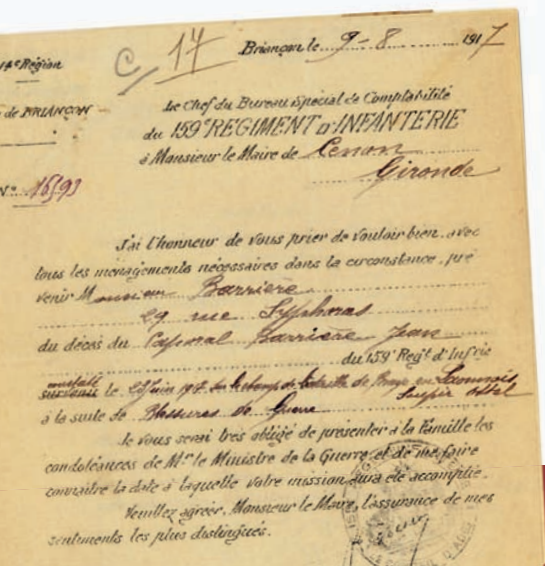 14e Région
C/ 17
Briançon le 9-8 1917
de BRIANÇON
Le Chef du Bureau Spécial de Comptabilité
du 159e REGIMENT d'INFANTERIE
à Monsieur le Maire de Cenon
Gironde
N° 16593
J'ai l'honneur de vous prier de vouloir bien, avec
tous les ménagements nécessaires dans la circonstance, pré
venir Monsieur Barrière
29 rue
du décès du Caporal Barrière Jean
du 159e Regt d'Infrie
constaté
survenu le Juin 1917 Sur le champ de bataille de en Laonnois
à la suite de Blessures de Guerre
Je vous serai très obligé de présenter à la Famille les
condoléances de Mr le Ministre de la Guerre et de me faire
connaître la date à laquelle votre mission aura été accomplie.
Veuillez agréer, Monsieur le Maire, l'assurance de mes
sentiments les plus distingués.